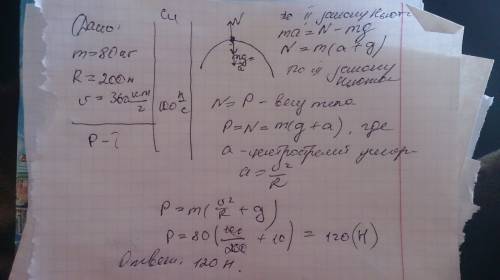 Дано:
m=80кг
R=200м
v=360 км/г
P-?
Си
100 м/с
N
mg
a
по II закону Ньют
ma=N-mg
N=m(a+g)
по III закону
Ньютона
N=P - весу тела
P=N=m(g+a), где
a - центростремит ускор
a=v²/R
P=m(v²/R+g)
P=80( /200+10)=120(H)
Ответ: 120 Н.